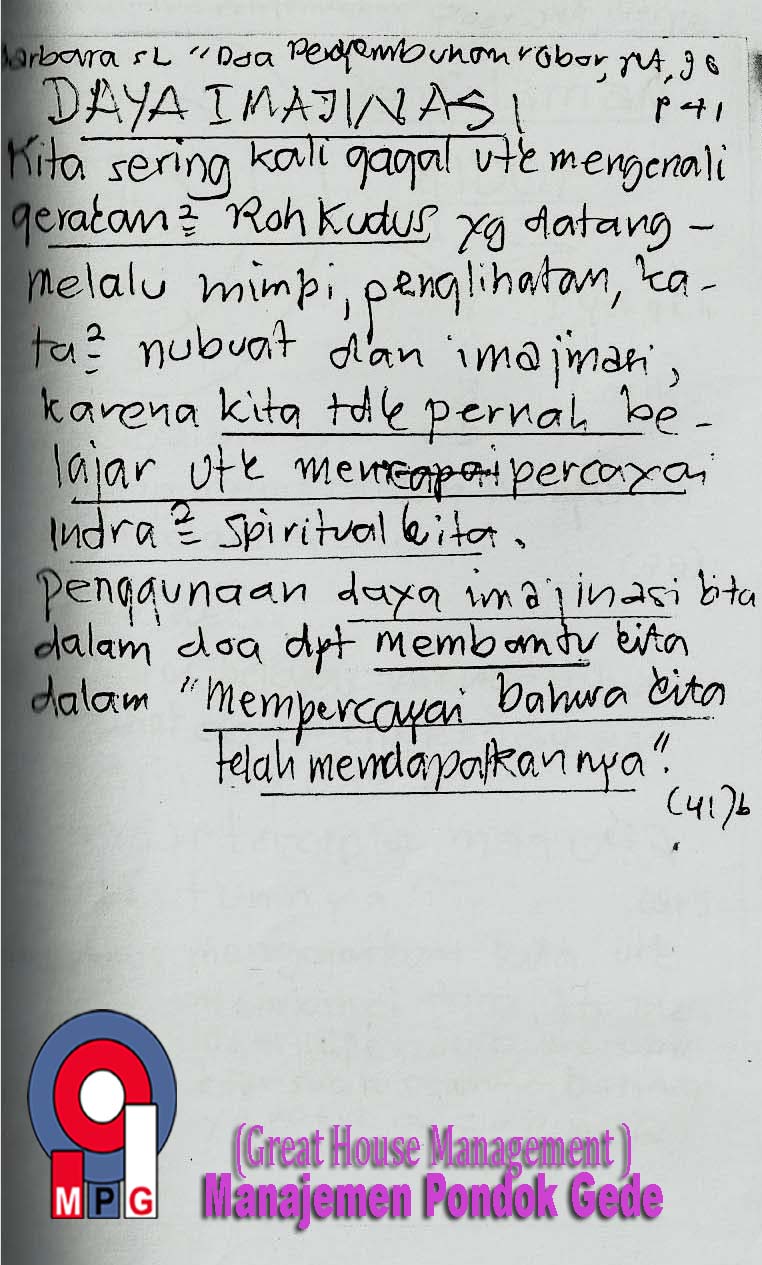 arbara SL "Doa Penyembuhan
DAYA IMAJINASI
P 41
Kita sering kali gagal utk mengenali
gerakan² Roh Kudus yg datang -
melalu mimpi, penglihatan, ka-
ta² nubuat dan imajinasi,
karena kita tdk pernah be-
lajar utk mempercayai
Indra² Spiritual kita.
Penggunaan daya imajinasi kita
dalam doa dpt membantu kita
dalam "mempercayai bahwa kita
telah mendapatkannya".
(41)b
MPG
(Great House Management)
Manajemen Pondok Gede